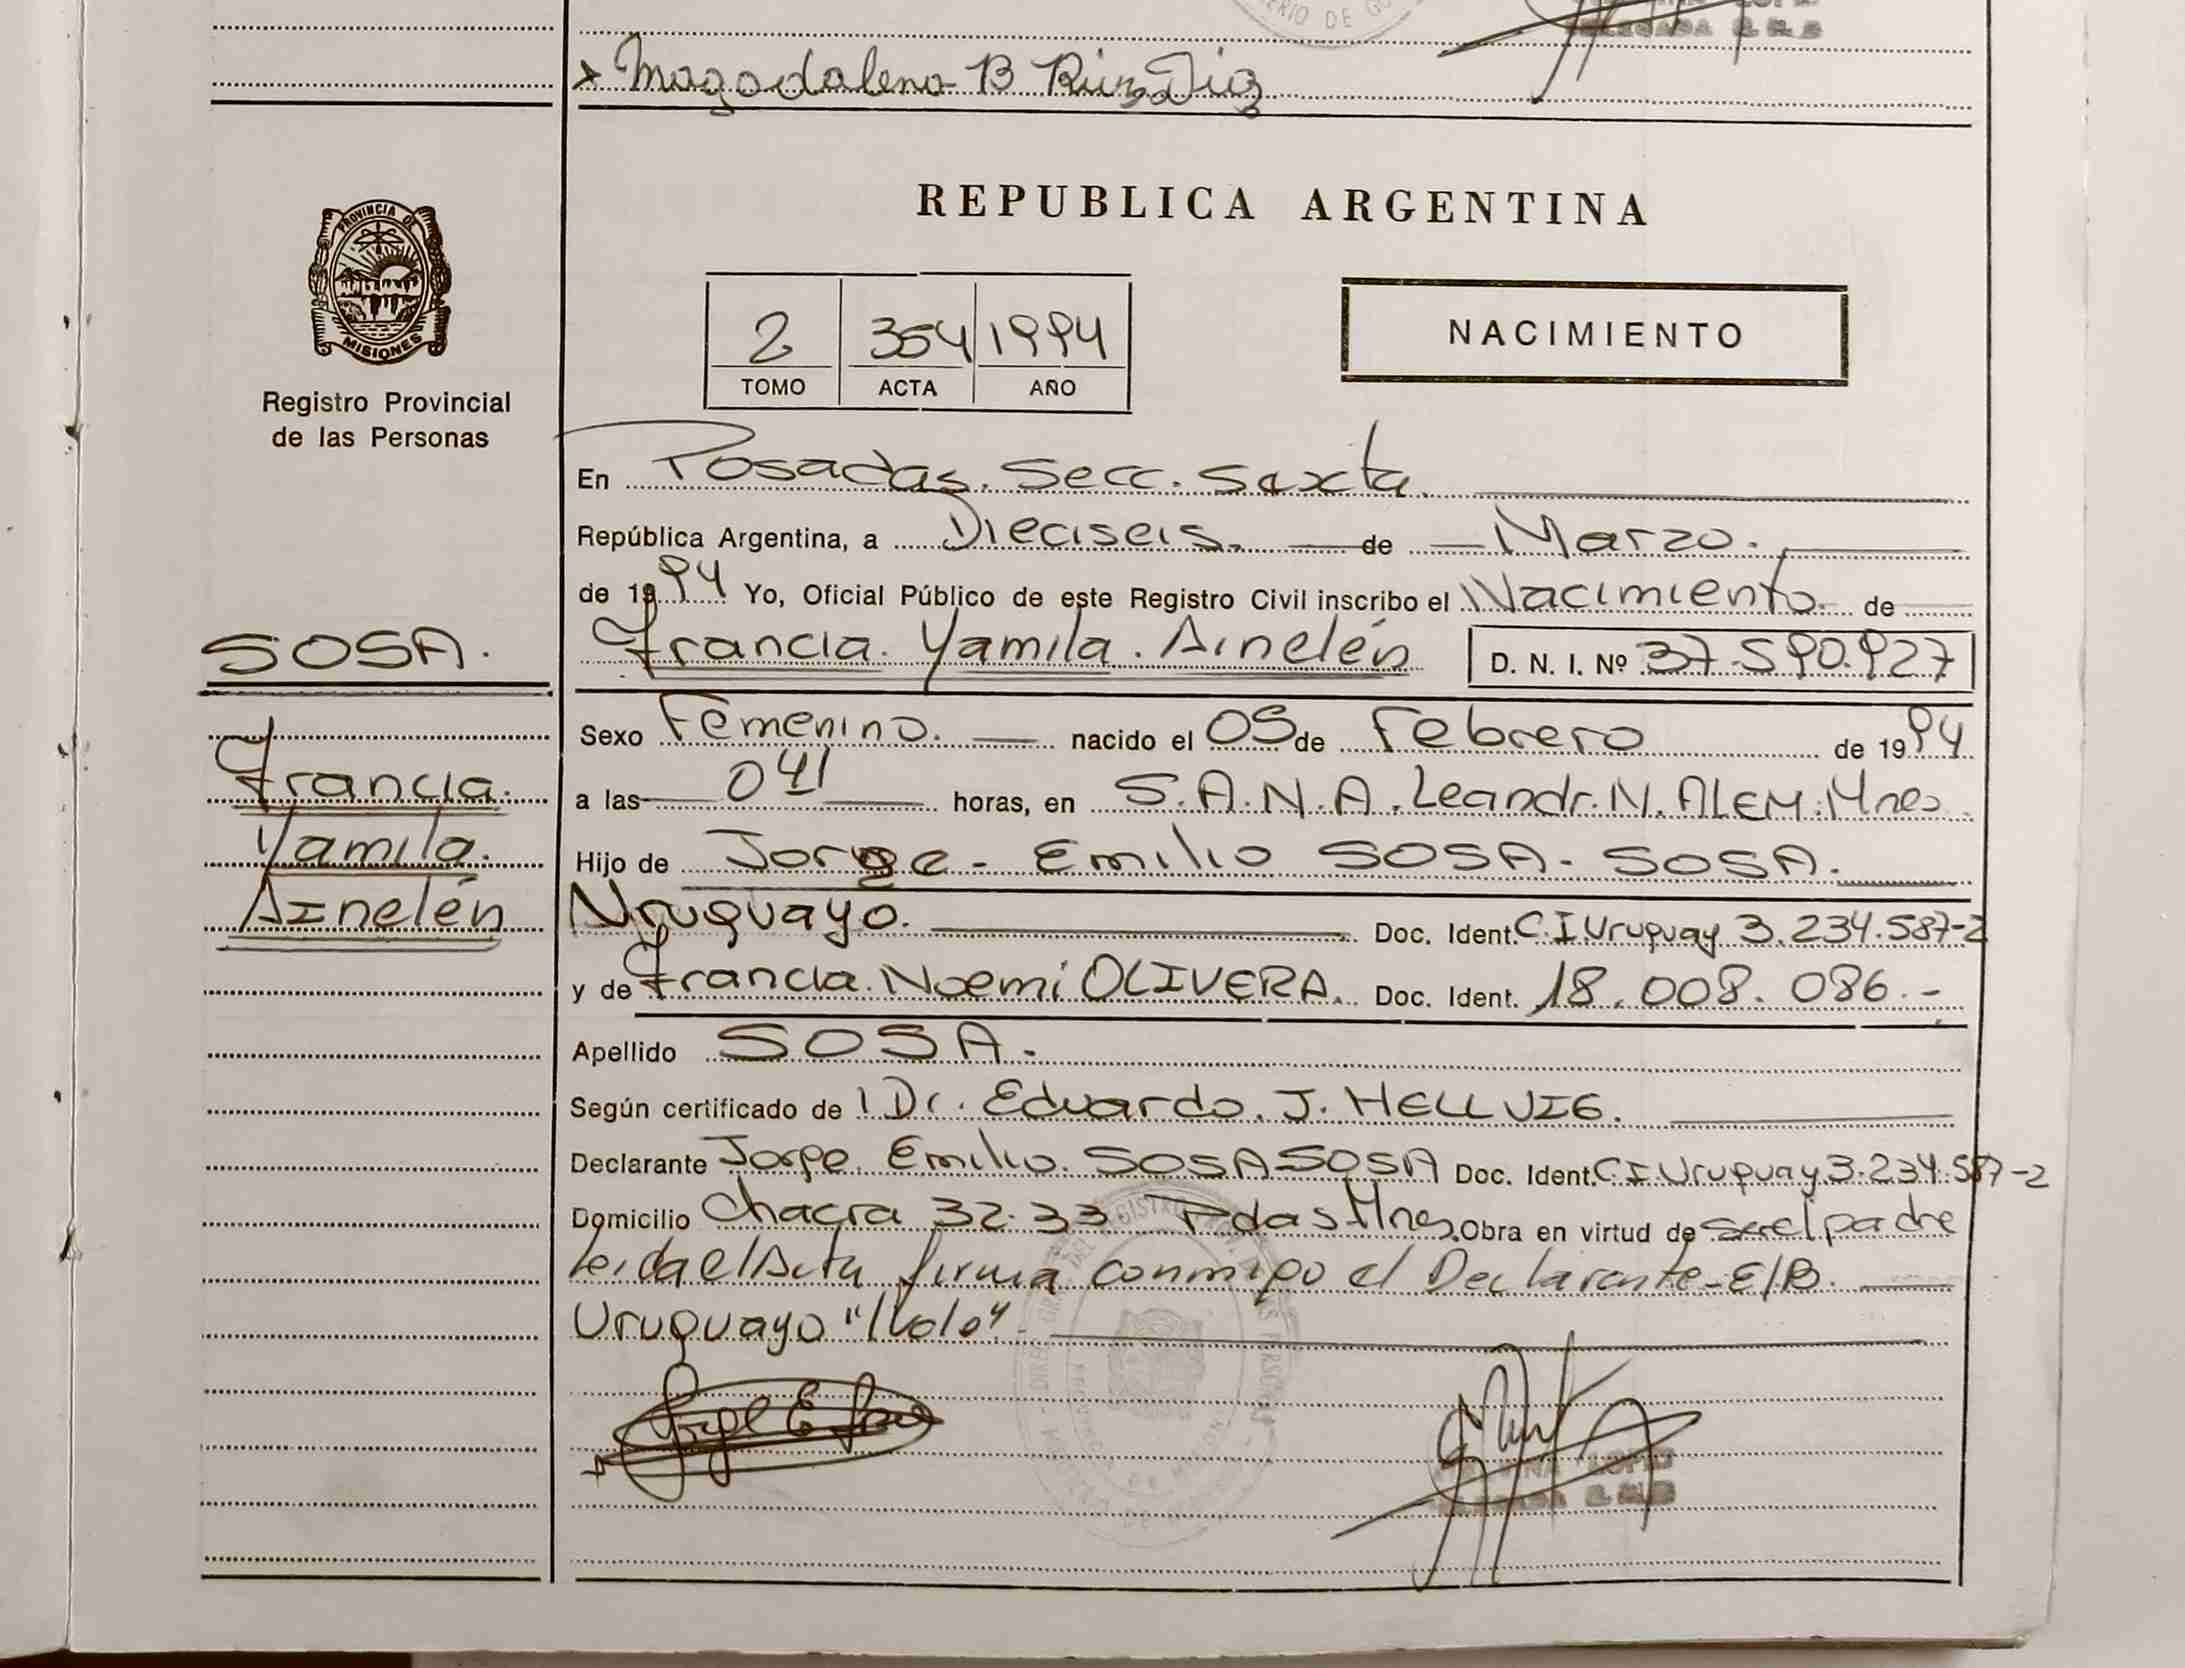 Magadalena B Ruiz Diaz
REPUBLICA ARGENTINA
PROVINCIA DE
MISIONES
Registro Provincial
de las Personas
2 354 1994
TOMO ACTA AÑO
NACIMIENTO
En Posadas. Secc. Sexta.
República Argentina, a Dieciseis. de Marzo.
de 1994 Yo, Oficial Público de este Registro Civil inscribo el Nacimiento. de
SOSA.
Francia. Yamila. Ainelén D. N. I. Nº 37.590.927
Sexo Femenino. nacido el 05 de Febrero de 1994
Francia.
a las 041 horas, en S.A.N.A. Leandr. N. ALEM. Mnes.
Yamila.
Hijo de Jorge - Emilio SOSA - SOSA.
Ainelén
Uruguayo. Doc. Ident. C.I. Uruguay 3.234.587-2
y de Francia. Noemí OLIVERA. Doc. Ident. 18.008.086.-
Apellido SOSA.
Según certificado de Dr. Eduardo. J. HELLVIG.
Declarante Jorge. Emilio. SOSA SOSA Doc. Ident. C I Uruguay 3.234.587-2
Domicilio Chacra 32-33 Pdas Mnes. Obra en virtud de ser el padre
Leida el Acta firma conmigo el Declarante - E/B.
Uruguayo "Vale".